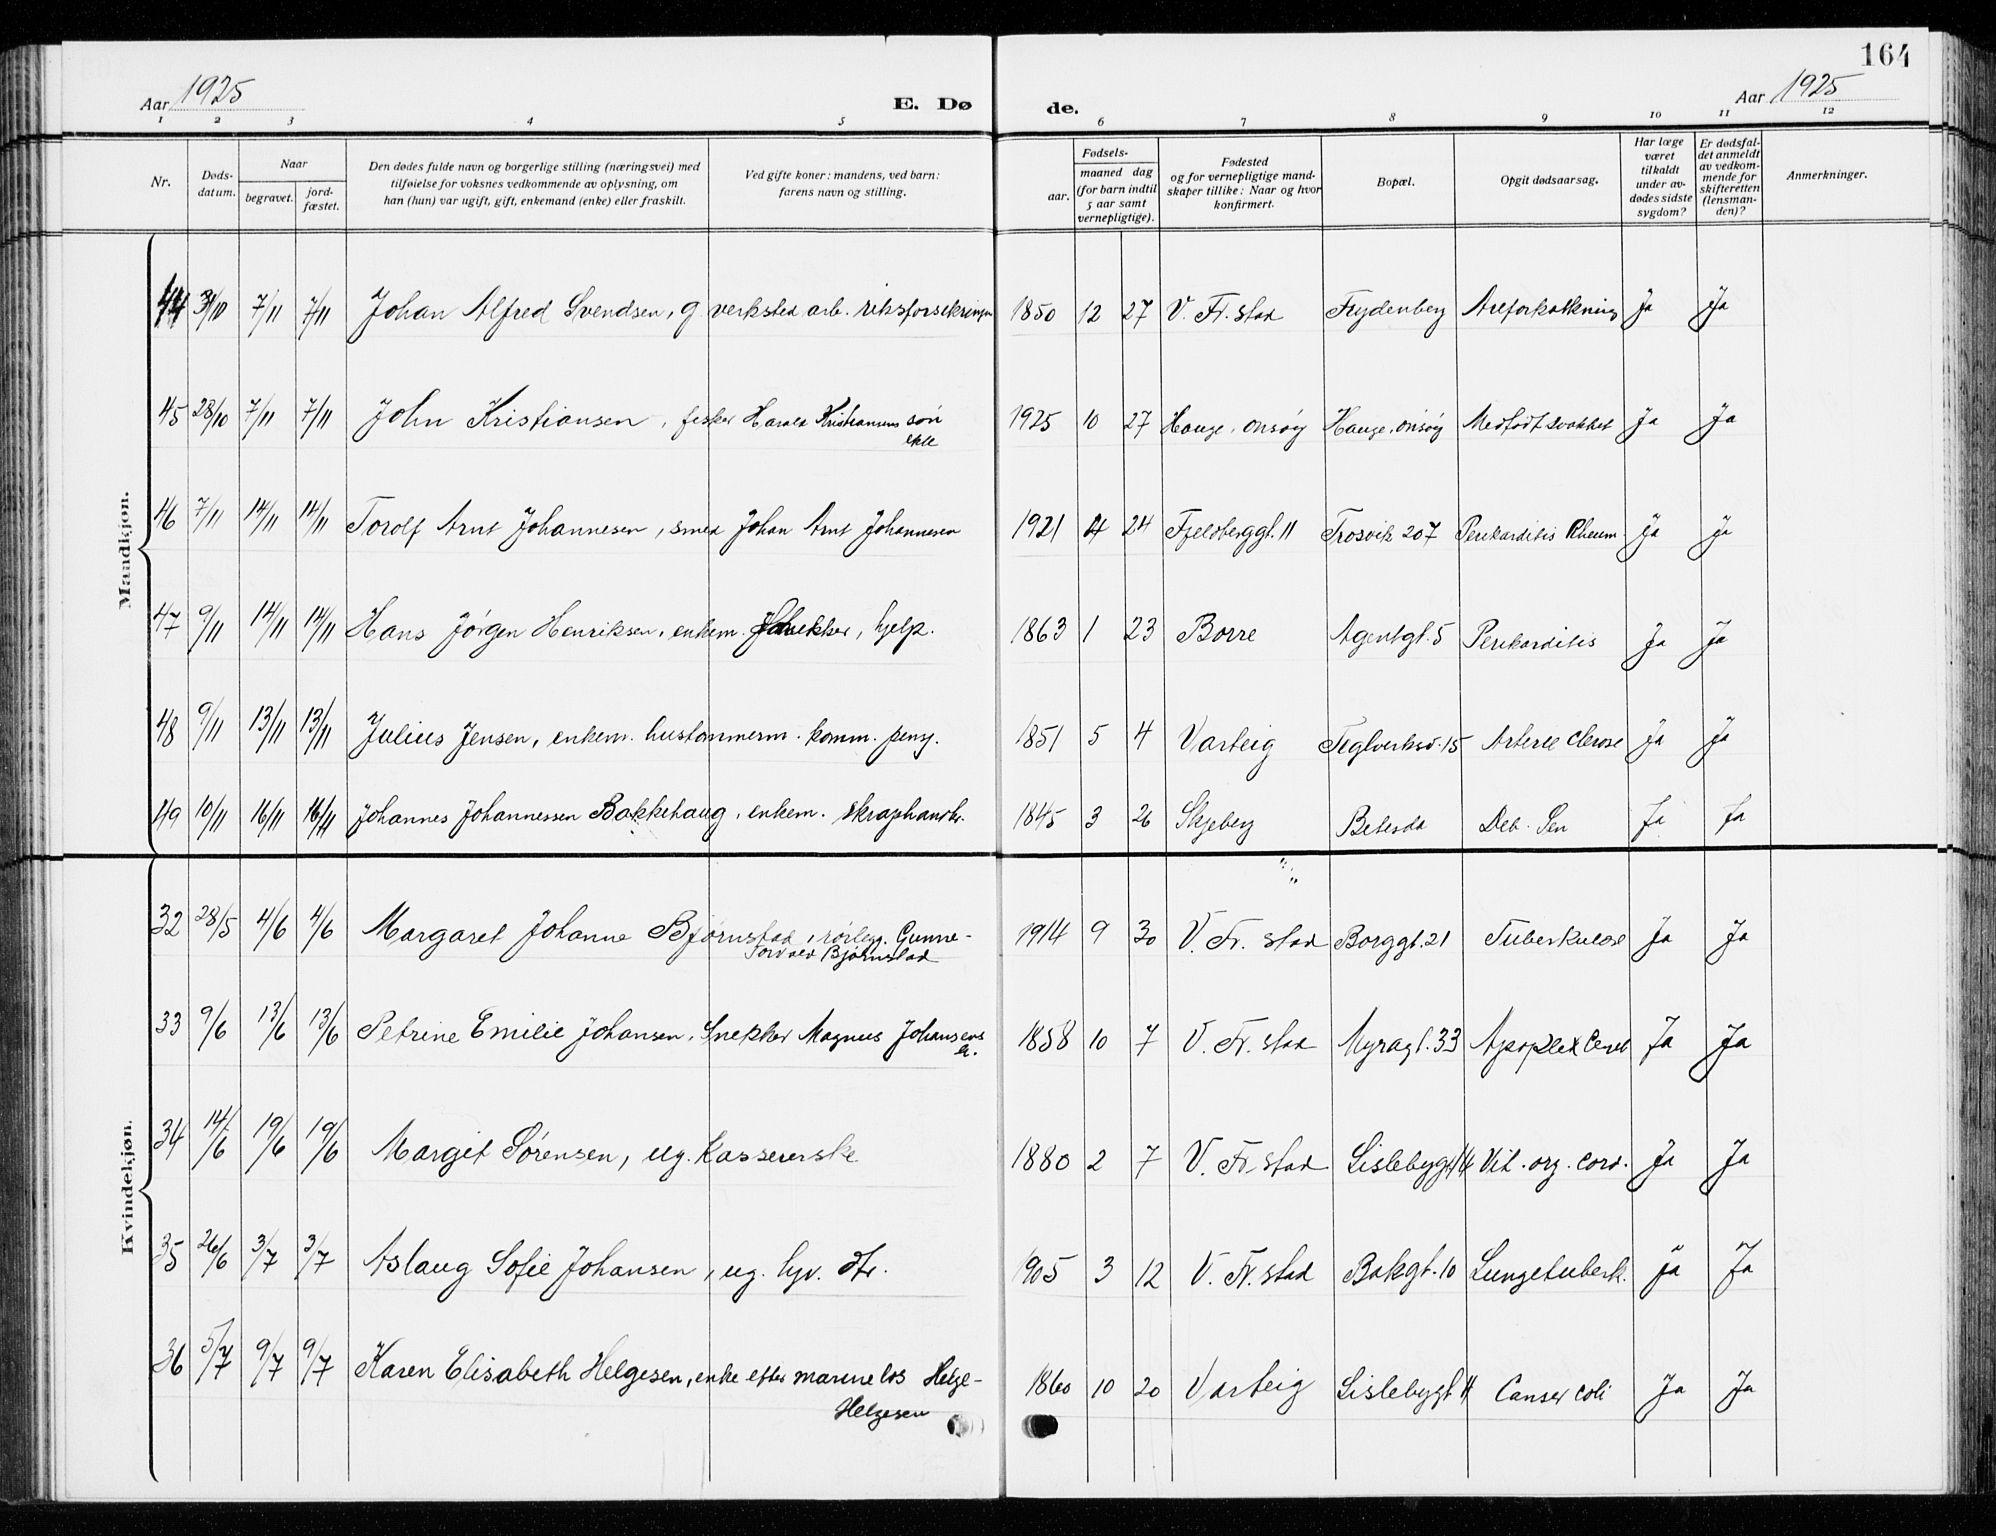 164
Aar 1925
E. Dø
de.
Aar 1925
1 2 3 4 5 6 7 8 9 10 11 12
Nr.
Døds-
datum.
Naar
begravet.
jord-
fæstet.
Den dødes fulde navn og borgerlige stilling (næringsvei) med
tilføielse for voksnes vedkommende av oplysning, om
han (hun) var ugift, gift, enkemand (enke) eller fraskilt.
Ved gifte koner: mandens, ved barn:
farens navn og stilling.
Fødsels-
aar.
maaned dag
(for barn indtil
5 aar samt
vernepligtige).
Fødested
og for vernepligtige mand-
skaper tillike: Naar og hvor
konfirmert.
Bopæl.
Opgit dødsaarsag.
Har læge
været
tilkaldt
under av-
dødes sidste
sygdom?
Er dødsfal-
det anmeldt
av vedkom-
mende for
skifteretten
(lensman-
den)?
Anmerkninger.
Mandkjøn.
44 31/10 7/11 7/11 Johan Alfred Svendsen, g. verksted arb. 1850 12 27 V. Fr.stad Frydenberg Areforkalkning Ja Ja
45 28/10 7/11 7/11 John Kristiansen, fisker Harald Kristiansens søn 1925 10 27 Hauge, Onsøy Hauge, Onsøy Medfødt svakhet Ja Ja
ekte
46 7/11 14/11 14/11 Torolf Arnt Johannesen, smed Johan Arnt Johannesen 1921 4 24 Fjeldberggt. 11 Trosvik 207 Perikarditis Rheum. Ja Ja
47 9/11 14/11 14/11 Hans Jørgen Henriksen, enkem. hjelp. 1863 1 23 Borre Agentgt. 5 Perikarditis Ja Ja
48 9/11 13/11 13/11 Julius Jensen, enkem. hustømmerm. komm. pensj. 1851 5 4 Varteig Teglverksv. 15 Arterie Clerose Ja Ja
49 10/11 16/11 16/11 Johannes Johannessen Bakkehaug, enkem. skraphandl. 1845 3 26 Skjeberg Betesda Deb. Sen Ja Ja
Kvindekjøn.
32 28/5 4/6 4/6 Margaret Johanne Bjørnstad, rørlegg. Gunne- 1914 9 30 V. Fr. stad Borggt. 21 Tuberkulose Ja Ja
Torvald Bjørnstad
33 9/6 13/6 13/6 Petrine Emilie Johansen, Snekker Magnus Johansens 1858 10 7 V. Fr. stad Myragt. 33 Apoplex Cereb Ja Ja
e.
34 14/6 19/6 19/6 Margit Sørensen, ug. Kassererske 1880 2 7 V. Fr. stad Lislebygt 14 Vit. org. cord. Ja Ja
35 26/6 3/7 3/7 Aslaug Sofie Johansen, ug. hjv. dtr. 1905 3 12 V. Fr. stad Bakgt. 10 Lungetuberk. Ja Ja
36 5/7 9/7 9/7 Karen Elisabeth Helgesen, enke efter marine los Helge- 1860 10 20 Varteig Lislebygt 4 Canser coli Ja Ja
Helgesen